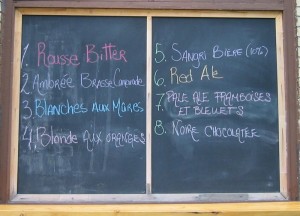 1. Rousse Bitter
2 Ambrée Brasse Camarade
3 Blanches aux Mûres
4. Blonde aux oranges
5. Sangri Bière (10%)
6. Red Ale
7. Pale Ale Framboises
et Bleuets
8. Noire Chocolatée